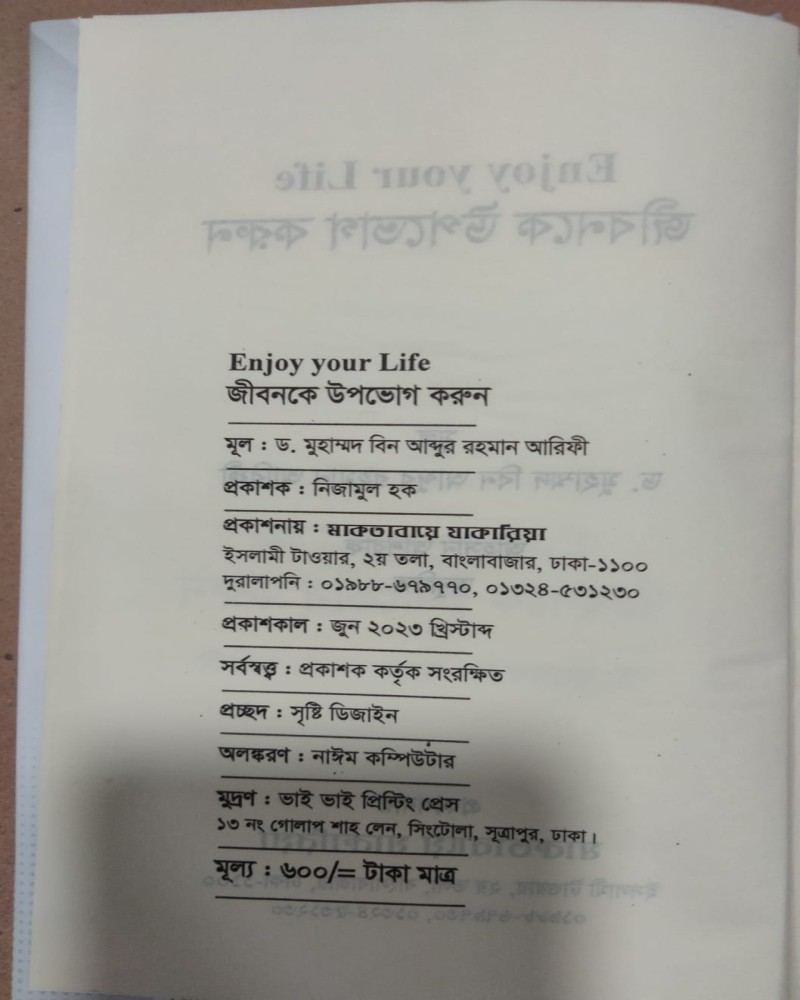 Enjoy your Life
জীবনকে উপভোগ করুন
Enjoy your Life
জীবনকে উপভোগ করুন
মূল : ড. মুহাম্মদ বিন আব্দুর রহমান আরিফী
প্রকাশক : নিজামুল হক
প্রকাশনায় : মাকতাবায়ে যাকারিয়া
ইসলামী টাওয়ার, ২য় তলা, বাংলাবাজার, ঢাকা-১১০০
দূরালাপনি : ০১৯৮৮-৬৭৯১৭০, ০১৩২৪-৫৩১২৩০
প্রকাশকাল : জুন ২০২৩ খ্রিস্টাব্দ
সর্বস্বত্ত্ব : প্রকাশক কর্তৃক সংরক্ষিত
প্রচ্ছদ : সৃষ্টি ডিজাইন
অলঙ্করণ : নাঈম কম্পিউটার
মুদ্রণ : ভাই ভাই প্রিন্টিং প্রেস
১৩ নং গোলাপ শাহ লেন, সিংটোলা, সূত্রাপুর, ঢাকা।
মূল্য : ৬০০/= টাকা মাত্র